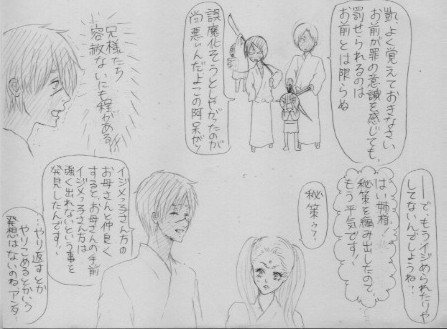 凱よく覚えておきなさい
お前が罪の意識を感じても、
罰せられるのは
お前とは限らぬ
誤魔化そうとしたがったのが
尚悪いんだよこの阿呆が!
兄様たち
容赦ないにも程がある!!
――で、もうイジメられたりーや
してないんでしょうね?
はい姉様
秘策を編み出したので
もう平気です!
秘策ぅ?
イジメっ子さん方の
お母さんと仲良く
するとお母さんの手前
イジメっ子さん方は
強く出れないという事を
発見したんです!
…やり返すとか
やりこめるとかいう
発想はないのね、アンタ…